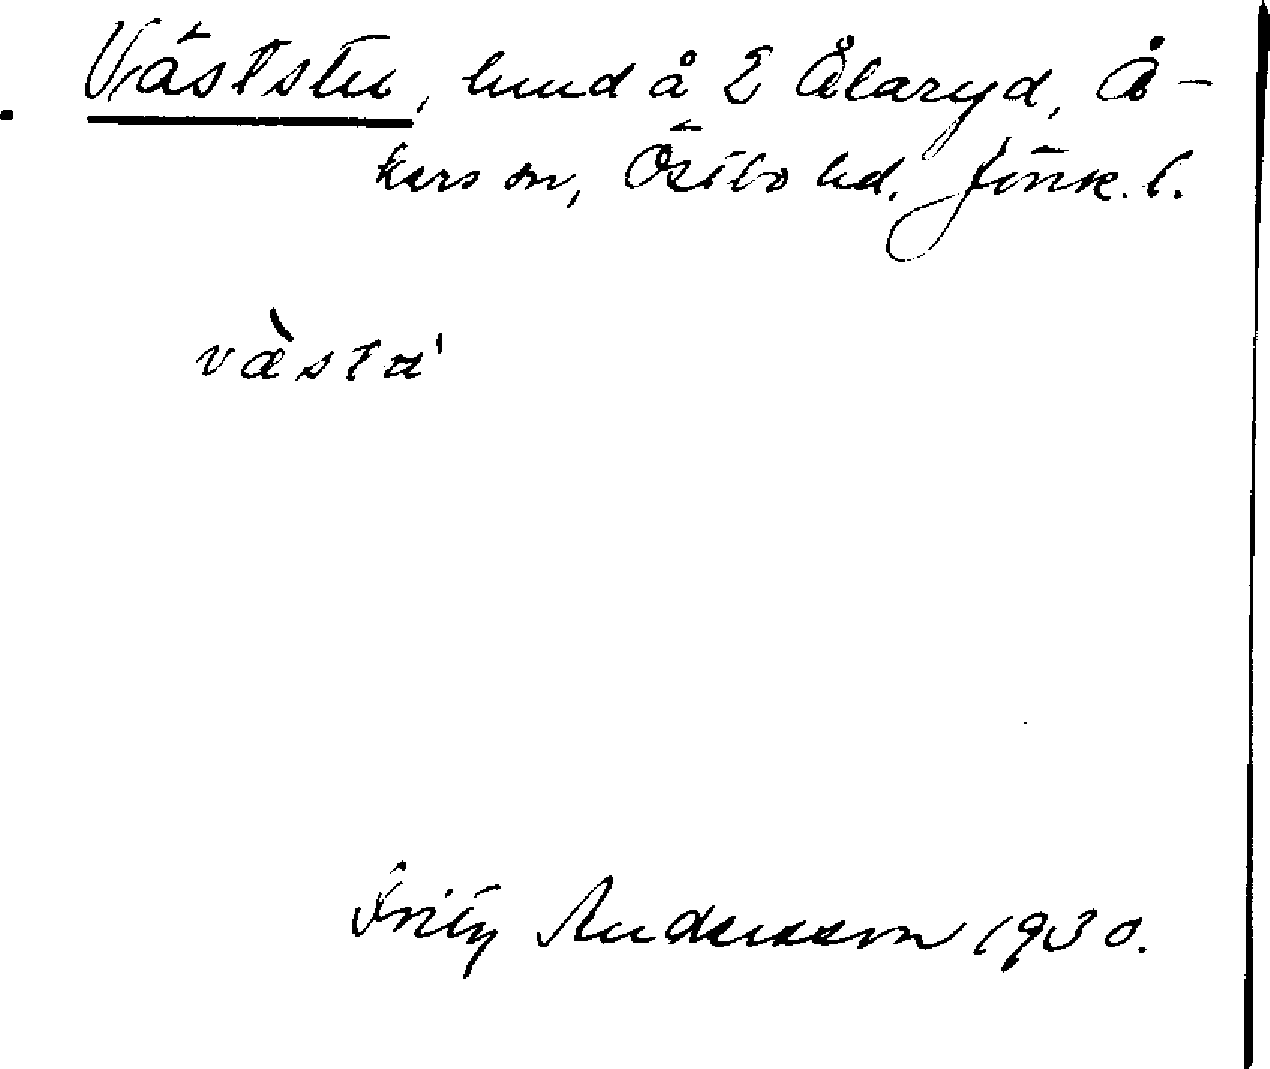 Väststu, lund å 2 Ålaryd, Å-
kers sn, Östbo hd. Jönk. l.
västa'
Fritz Andersson 1930.